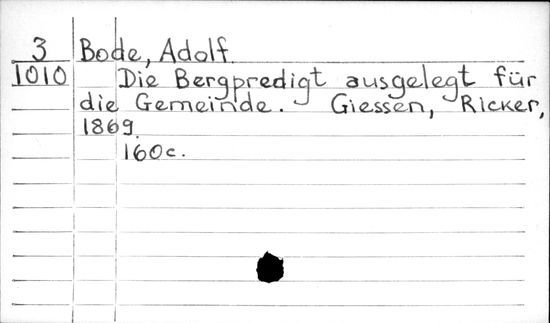 3 Bode, Adolf.
1010 Die Bergpredigt ausgelegt für
die Gemeinde. Giessen, Ricker,
1869.
160c.